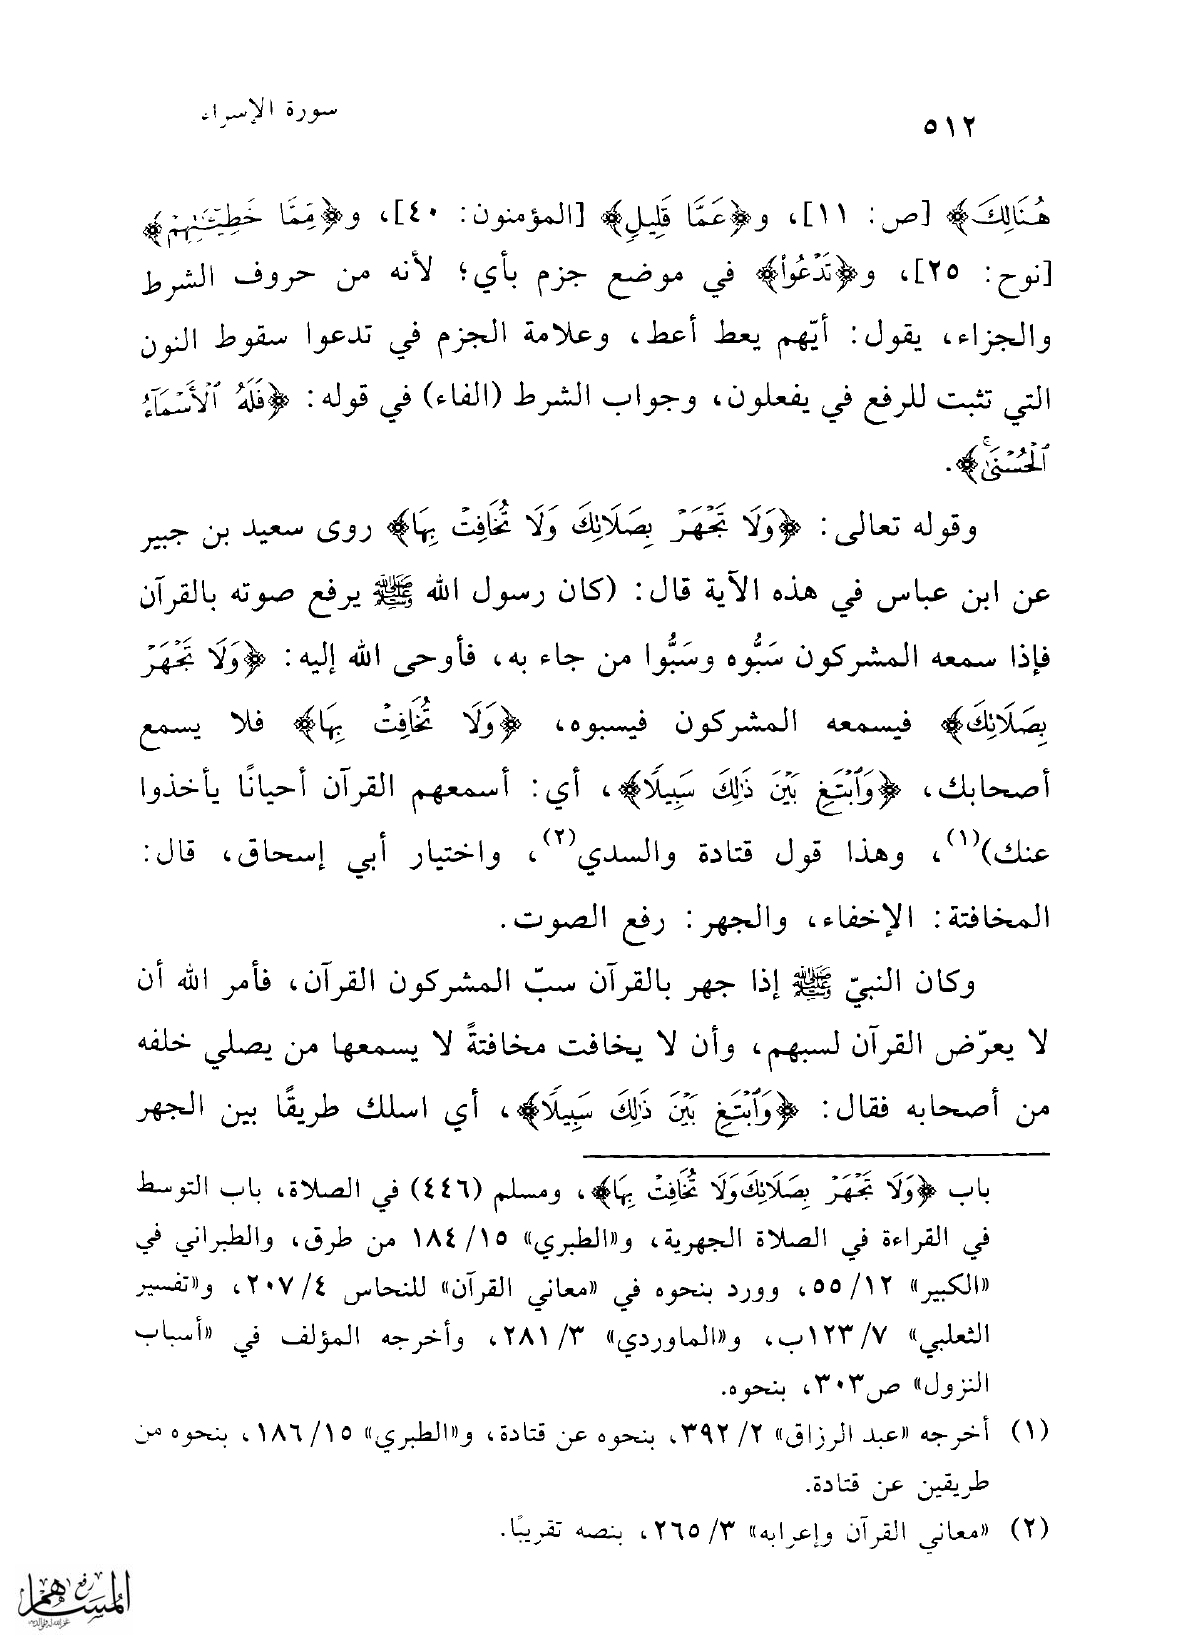 ٥١٢
سورة الإسراء
هُنَالِكَ﴾ [ص: ١١]، و﴿عَمَّا قَلِيلٍ﴾ [المؤمنون: ٤٠]، و﴿مِّمَّا خَطِيـَٰٔتِهِمْ﴾
[نوح: ٢٥]، و﴿تَدْعُواْ﴾ في موضع جزم بأي؛ لأنه من حروف الشرط
والجزاء، يقول: أيّهم يعط أعط، وعلامة الجزم في تدعوا سقوط النون
التي تثبت للرفع في يفعلون، وجواب الشرط (الفاء) في قوله: ﴿فَلَهُ ٱلْأَسْمَآءُ
ٱلْحُسْنَىٰۚ﴾.
وقوله تعالى: ﴿وَلَا تَجْهَرْ بِصَلَاتِكَ وَلَا تُخَافِتْ بِهَا﴾ روى سعيد بن جبير
عن ابن عباس في هذه الآية قال: (كان رسول الله ﷺ يرفع صوته بالقرآن
فإذا سمعه المشركون سَبُّوه وسَبُّوا من جاء به، فأوحى الله إليه: ﴿وَلَا تَجْهَرْ
بِصَلَاتِكَ﴾ فيسمعه المشركون فيسبوه، ﴿وَلَا تُخَافِتْ بِهَا﴾ فلا يسمع
أصحابك، ﴿وَٱبْتَغِ بَيْنَ ذَٰلِكَ سَبِيلًا﴾، أي: أسمعهم القرآن أحيانًا يأخذوا
عنك)(١)، وهذا قول قتادة والسدي(٢)، واختيار أبي إسحاق، قال:
المخافتة: الإخفاء، والجهر: رفع الصوت.
وكان النبيّ ﷺ إذا جهر بالقرآن سبّ المشركون القرآن، فأمر الله أن
لا يعرّض القرآن لسبهم، وأن لا يخافت مخافتةً لا يسمعها من يصلي خلفه
من أصحابه فقال: ﴿وَٱبْتَغِ بَيْنَ ذَٰلِكَ سَبِيلًا﴾، أي اسلك طريقًا بين الجهر
باب ﴿وَلَا تَجْهَرْ بِصَلَاتِكَ وَلَا تُخَافِتْ بِهَا﴾، ومسلم (٤٤٦) في الصلاة، باب التوسط
في القراءة في الصلاة الجهرية، و«الطبري» ١٥/ ١٨٤ من طرق، والطبراني في
«الكبير» ١٢/ ٥٥، وورد بنحوه في «معاني القرآن» للنحاس ٤/ ٢٠٧، و«تفسير
الثعلبي» ٧/ ١٢٣ب، و«الماوردي» ٣/ ٢٨١، وأخرجه المؤلف في «أسباب
النزول» ص٣٠٣، بنحوه.
(١) أخرجه «عبد الرزاق» ٢/ ٣٩٢، بنحوه عن قتادة، و«الطبري» ١٥/ ١٨٦، بنحوه من
طريقين عن قتادة.
(٢) «معاني القرآن وإعرابه» ٣/ ٢٦٥، بنصه تقريبًا.